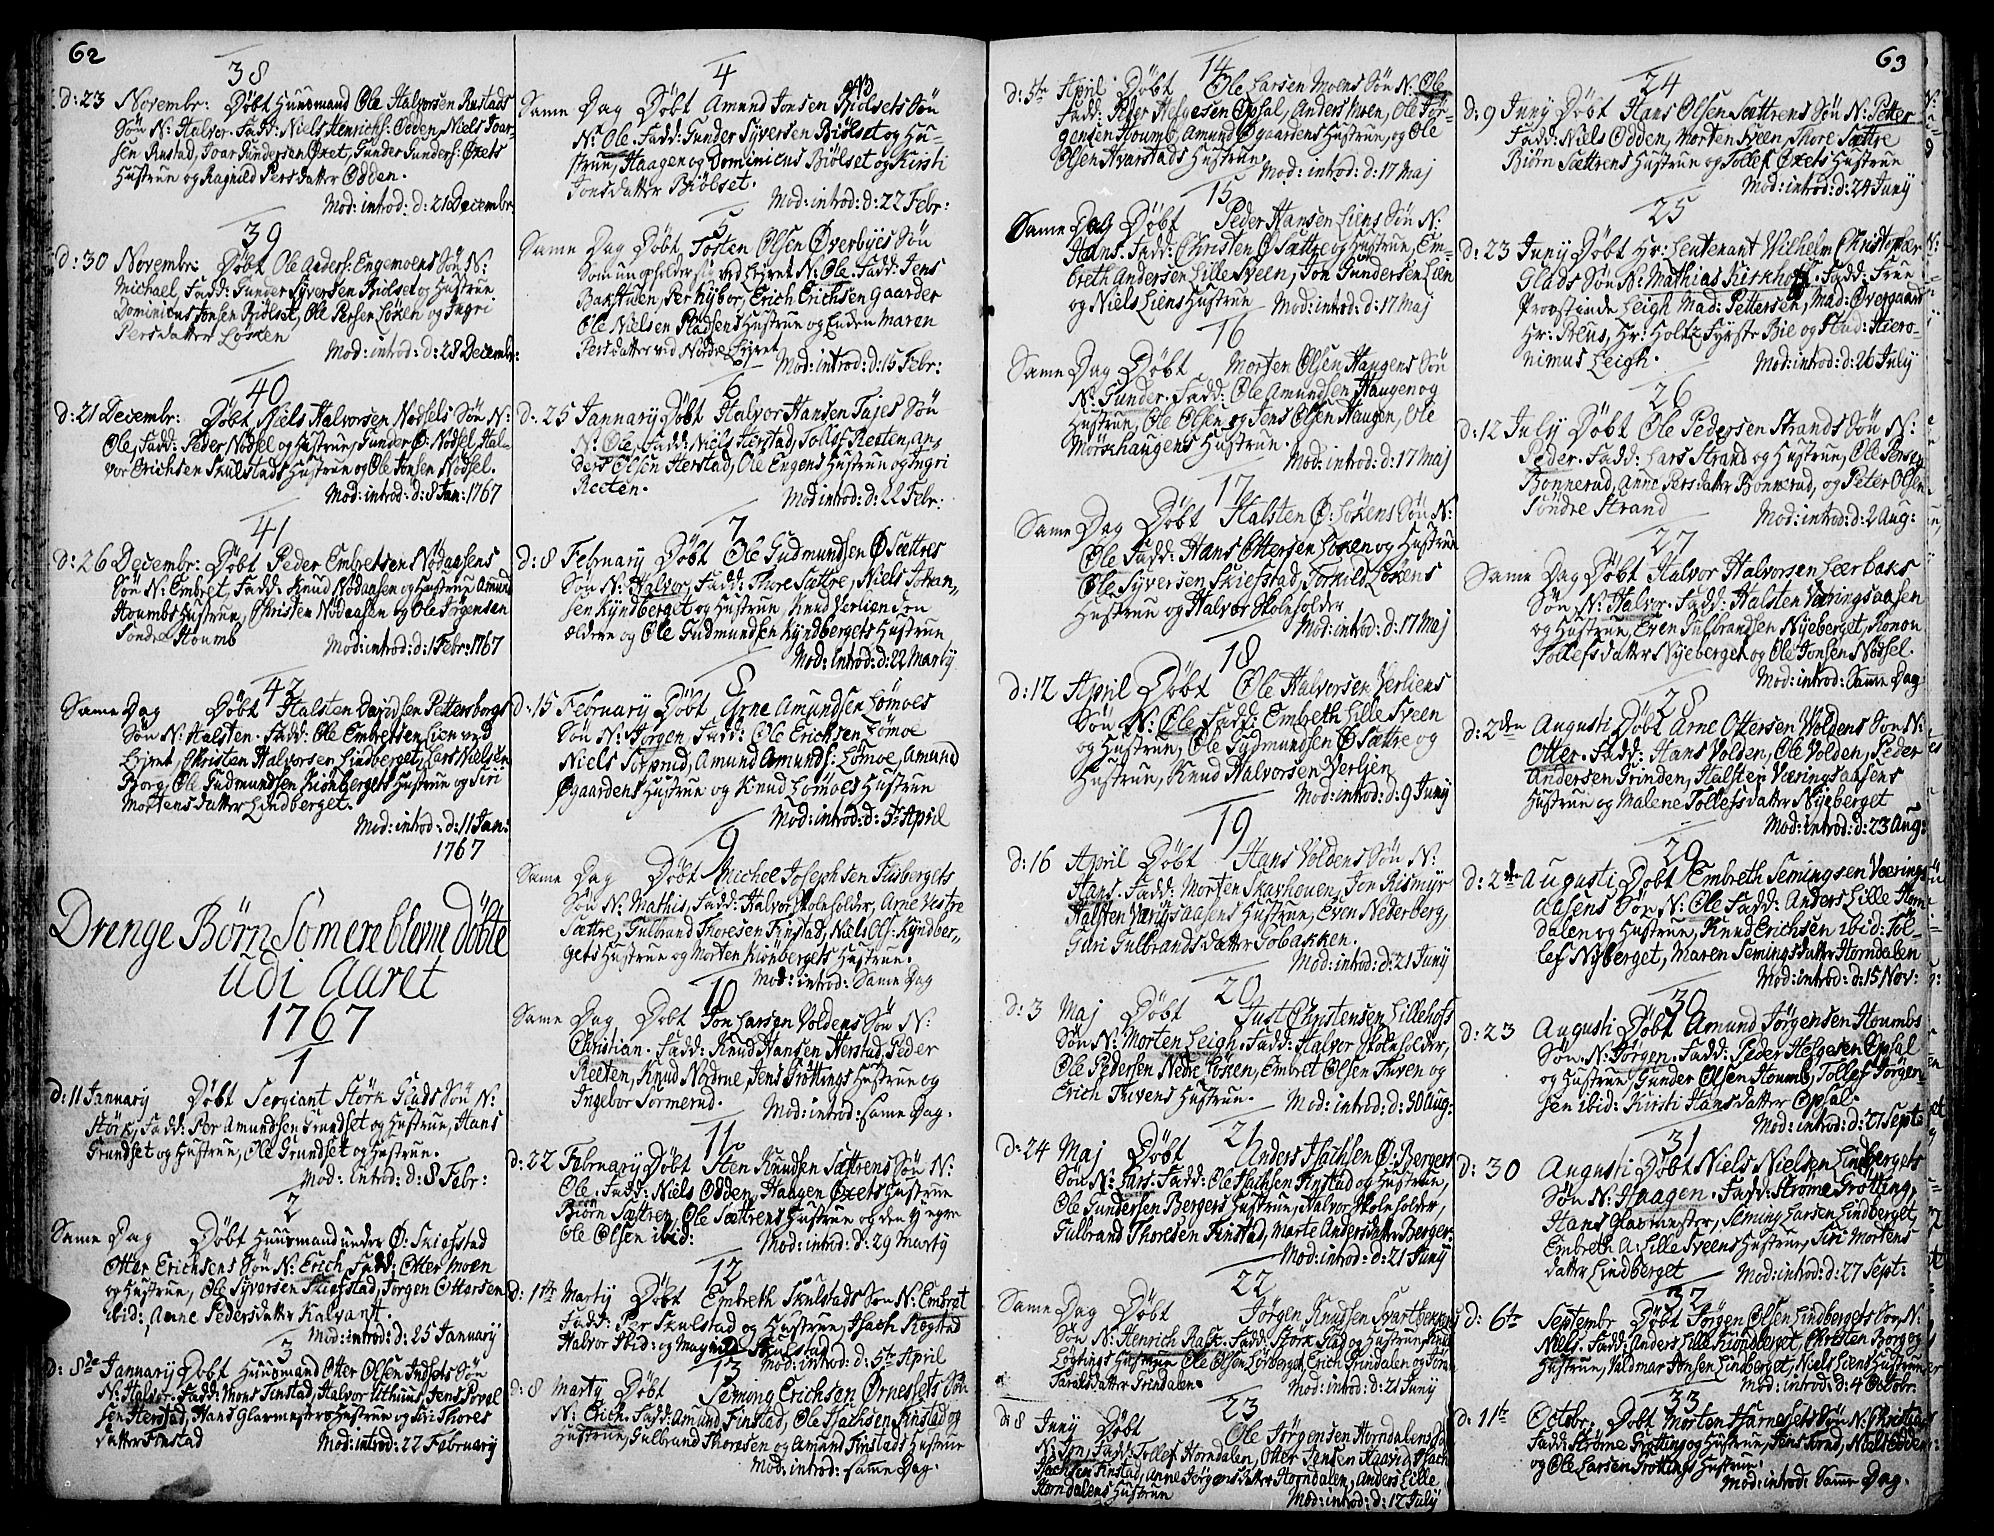 62
38
d: 23 Novembr: Døbt Huusmand Ole Halvorsen Rustads
Søn N: Halvor. Fadd: Niels Henrichs: Odden, Niels Ioar
sen Rustad, Ioar Gundersen Oxet, Gunder Gunders: Oxets
Hustrue og Ragnild Persdatter Odden.
Mod: introd: d: 21 Decembr:
39
d: 30 Novembr: Døbt Ole Anders: Engemoens Søn N:
Michael, Fadd: Gunder Syversen Biølset og Hustrue
Dominicus Jonsen Biølset, Ole Persen Løken og Ingri
Persdatter Løken
Mod: introd: d: 28 Decembr:
40
d: 21 Decembr: Døbt Niels Halvorsen Nødsels Søn N:
Ole, Fadd: Peder Nødsel og Hustrue, Gunder Ø: Nødsel Hal-
vor Erichsen Skulstads Hustrue og Ole Jonsen Nødsel.
Mod: introd: d: 8 Jan: 1767
41
d: 26 Decembr: Døbt Peder Embretsen Nødaasens
Søn N: Embret, Fadd: Knud Nødaasen og Hustrue Amund
Houmbs Hustrue, Christen Nødaasen og Ole Jørgensen
Søndre Houmb
Mod: introd: d: 1 Febr: 1767
42
Same Dag Døbt Halsten Davidsen Pettersborgs
Søn N: Halsten. Fadd: Ole Embretsen Lien ved
Leiret Christen Halvorsen Lindberget, Lars Nielsen
Borg, Ole Gudmundsen Kiønbergets Hustrue og Siri
Mortensdatter Lindberget.
Mod: introd: d: 11 Jan:
1767
Drenge Børn Som ere blevne døbte
udi Aaret
1767
1
d: 11 January Døbt Sergiant Størk Glads Søn N:
Størk, Fadd: Per Amundsen Grundset og Hustrue, Hans
Grundset og Hustrue, Ole Grundset og Hustrue.
Mod: introd: d: 8 Febr:
2
Same Dag Døbt Huusmand under Ø: Skiefstad
Otter Erichsens Søn N: Erich, Fadd: Otter Moen
og Hustrue, Ole Syversen Skiefstad, Jørgen Ottersen
ibid: Anne Pedersdatter Kalvant.
Mod: introd: d: 25 January
3
d: 8de January Døbt Huusmand Otter Olsen Indsets Søn
N: Halvor. Fadd: Mons Finstad, Halvor Uthuus, Jens Povel
sen Herstad, Hans Glarmesters Hustrue og Siri Thores
datter Finstad
Mod: introd: 22 February
4
Same Dag Døbt Amund Jonsen Biølsets Søn
N: Ole. Fadd: Gunder Syversen Biølset og Hu-
strue, Haagen og Dominicus Biølset og Kirsti
Jonsdatter Biølset.
Mod: introd: d: 22 Febr:
5
Same Dag Døbt Tosten Olsen Øverbyes Søn
som unopholder sig ved Leiret N: Ole. Fadd: Jens
Bakstuen, Per Nybor, Erich Erichsen Gaarder
Ole Nielsen Pladsens Hustrue og Enken Maren
Persdatter ved Nordre Leiret
Mod: introd: d: 15 Febr:
6
d: 25 January Døbt Halvor Hansen Fajes Søn
N: Ole, Fadd: Niels Herstad, Tollof Reeten, An-
ders Olsen Herstad, Ole Engens Hustrue og Ingri
Reeten.
Mod: introd: d: 22 Febr:
7
d: 8 February Døbt Ole Gudmundsen Ø Sættres
Søn N: Halvor, Fadd: Thore Sættre, Niels Johan-
sen Kyndberget og Hustrue, Knud Verlien den
ældere og Ole Gudmundsen Kyndbergets Hustrue
Mod: introd: d: 22 Marty
8
d: 15 February Døbt Arne Amundsen Lømoes
Søn N: Jørgen, Fadd: Ole Erichsen Lømoe
Niels Torsmid, Amund Amunds: Lømoe, Amund
Øgaardens Hustrue og Knud Lømoes Hustrue
Mod: introd: d: 5te April
9
Same Dag Døbt Michel Josephsen Fisbergets
Søn N: Mathis, Fadd: Halvor Skoleholder, Arne Vestre
Sættre, Gulbrand Thoresen Finstad, Niels Ols: Kyndber-
gets Hustrue og Morten Kiønbergets Hustrue.
Mod: introd: Same Dag
10
Same Dag Døbt Jon Larsen Voldens Søn N:
Christian. Fadd: Knud Hansen Herstad, Peder
Reeten, Knud Nordrue, Jens Trøttings Hustrue og
Ingebor Sormerud.
Mod: introd: Same Dag.
11
d: 22 February Døbt Sten Knudsen Sættrens Søn N:
Ole. Fadd: Niels Odden, Haagen Oxets Hustrue
Biørn Sættren, Ole Sættrens Hustrue og den yngre
Ole Olsen ibid:
Mod: introd: d: 29 Marty
12
d: 1te Marty Døbt Embreth Skulstads Søn N: Embret
Fadd: Per Skulstad og Hustrue, Isach Rogstad
Halvor Ibid: og Magnild Skulstad
Mod: introd: d: 5te April
13
d: 8 Marty Døbt Semong Erichsen Ørnesets Søn
N: Erich. Fadd: Amund Finstad, Ole Isachsen Finstad og
Hustrue, Gulbrand Thoresen og Amund Finstads Hustrue
Mod: introd: Samme Dag.
63
14
d: 5te April Døbt Ole Larsen Moens Søn N: Ole
Fadd: Peder Helgesen Opsal, Anders Moen, Ole Jør-
gensen Houmb, Amund Øgaardens Hustrue, og Ole
Olsen Kvarstads Hustrue
Mod: introd: d: 17 Maj
15
Same Dag Døbt Peder Hansen Liens Søn N:
Hans. Fadd: Christen Ø Sættre og Hustrue, Em-
breth Andersen Lille Sveen, Jon Gundersen Lien
og Niels Liens Hustrue Mod: introd: d: 17 Maj
16
Same Dag Døbt Morten Olsen Haugens Søn
N: Gunder. Fadd: Ole Amundsen Haugen og
Hustrue, Ole Olsen og Jens Olsen Haugen, Ole
Mørkhaugens Hustrue.
Mod: introd: d: 17 Maj
17
Same Dag Døbt Halsten Ø: Løkens Søn N:
Ole Fadd: Hans Ottersen Løken og Hustrue
Ole Syversen Skiefstad, Torkild Løkens
Hustrue og Halvor Skoleholder
Mod: introd: d: 17 Maj
18
d: 12 April Døbt Ole Halvorsen Verliens
Søn N: Ole Fadd: Embreth Lille Sveen
og Hustrue, Ole Gudmundsen Ø Sættre og
Hustrue, Knud Halvorsen Verlien
Mod: introd: d: 9 Juny
19
d: 16 April Døbt Hans Voldens Søn N:
Hans. Fadd: Morten Skarhouen, Jon Rismyr
Halsten Væringsaasens Hustrue, Even Nederberg,
Guri Gulbrandsdatter Sobakken.
Mod: introd: d: 21 Juny
20
d: 3 Maj Døbt Just Christensen Lillehofs
Søn N: Morten Leigh. Fadd: Halvor Skoleholder,
Ole Pedersen Nedre Løken, Embret Olsen Tuven og
Erich Tuvens Hustrue. Mod: introd: d: 30 Aug:
21
d: 24 Maj Døbt Anders Isachsen Ø: Bergers
Søn N: Lars. Fadd: Ole Isachsen Finstad og Hustrue,
Ole Gundersen Bergers Hustrue, Halvor Skoleholder,
Gulbrand Thoresen Finstad, Marte Andersdatter Berger.
Mod: introd: d: 21 Juny
22
Same Dag Døbt Jørgen Knudsen Svartbekkens
Søn N: Henrich Rask. Fadd: Størk Glad og Hustrue,
Løgtings Hustrue Ole Olsen Lørberget, Erich Grindalen og
Taralsdatter Grindalen.
Mod: introd: d: 21 Juny
23
d: 8 Juny Døbt Ole Jørgensen Horndalens Søn
N: Jon, Fadd: Tollef Horndalen, Otter Jensen Haavid, Isach
Isachsen Finstad, Anne Jørgensdatter Horndalen, Anders Lille
Horndalens Hustrue
Mod: introd: d: 12 July
24
d: 9 Juny Døbt Hans Olsen Sættrens Søn N: Petter
Fadd: Niels Odden, Morten Sveen, Thore Sættre
Biørn Sættrens Hustrue og Tollef Oxets Hustrue
Mod: introd: d: 24 Juny
25
d: 23 Juny Døbt Hr: Leutenant Wilhelm Christopher
Glads Søn N: Mathias Kirkhoff. Fadd: Frue
Provstinde Leigh Mad: Pettersen, Mad: Øvergaard
Hr: Preus, Hr: Holtz Fyrste Bie og Stud: Hiero-
nimus Leigh.
Mod: introd: d: 26 July
26
d: 12 July Døbt Ole Pedersen Strands Søn N:
Peder. Fadd: Lars Strand og Hustrue, Ole Persen
Bonnerud, Anne Persdatter Bonnerud, og Peter Olsen
Søndre Strand
Mod: introd: d: 2 Aug:
27
Same Dag Døbt Halvor Halvorsen Leerbaks
Søn N: Halvor. Fadd: Halsten Væringsaasen
og Hustrue, Even Gulbrandsen Nyeberget, Ronou
Tollefsdatter Nyeberget og Ole Jonsen Nødsel.
Mod: introd: Same Dag
28
d: 2den Augusti Døbt Arne Ottersen Voldens Søn N:
Otter. Fadd: Hans Volden, Ole Volden, Peder
Andersen Grinden, Halsten Væringsaasens
Hustrue og Malene Tollefsdatter Nyeberget
Mod: introd: d: 23 Aug:
29
d: 2den Augusti Døbt Embreth Semingsen Værings
aasens Søn N: Ole Fadd: Anders Lille Horn
dalen og Hustrue, Knud Erichsen ibid: Tol-
lef Nyberget, Maren Semingsdatter Horndalen
Mod: introd: d: 15 Nov:
30
d: 23 Augusti Døbt Amund Jørgensen Houmbs
Søn N: Jørgen. Fadd: Peder Helgesen Opsal
og Hustrue, Gunder Olsen Houmb, Tollef Jørgen-
sen ibid: Kirsti Hansdatter Opsal.
Mod: introd: d: 27 Septb
31
d: 30 Augusti Døbt Niels Nielsen Lindbergets
Søn N: Haagen. Fadd: Strøme Grøtting,
Hans Glarmester, Seming Larsen Lindberget,
Embreth A: Lille Sveens Hustrue, Siri Mortens
datter Lindberget
Mod: introd: d: 27 Sept:
32
d: 6te Septembr Døbt Jørgen Olsen Lindbergets Søn N:
Niels. Fadd: Anders Lille Kiønberget, Christen Borg og
Hustrue, Woldmar Jonsen Lindberget, Niels Liens Hustrue
Mod: introd: d: 4 Octobr:
33
d: 11te Octobr: Døbt Morten Harnesets Søn N: Christian
Fadd: Strøme Grøtting og Hustrue, Niels Odden
og Ole Larsen Grøttings Hustrue.
Mod: introd: Samme Dag.